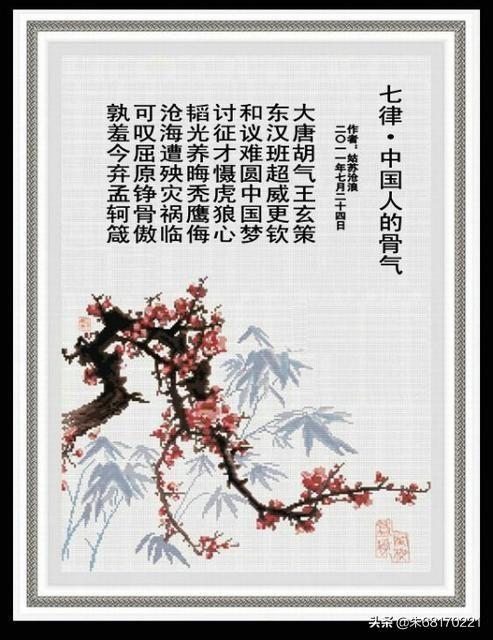 七律·中国人的骨气
作者：姑苏沧浪
二〇一一年七月二十四日
大唐胡气王玄策
东汉班超威更钦
和议难圆中国梦
讨征才慑虎狼心
韬光养晦秃鹰侮
沧海遭殃灾祸临
可叹屈原铮骨傲
孰羞今弃孟轲箴
头条@朱68170221